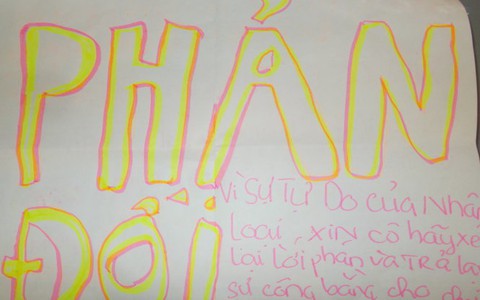 PHẢN
ĐỐI
Vì SỰ TỰ DO CỦA NHÂN
LOẠI, XIN CÔ HÃY XÉ
LẠI LỜI PHÁN VÀ TRẢ LẠ
SỰ CÔNG BẰNG CHO